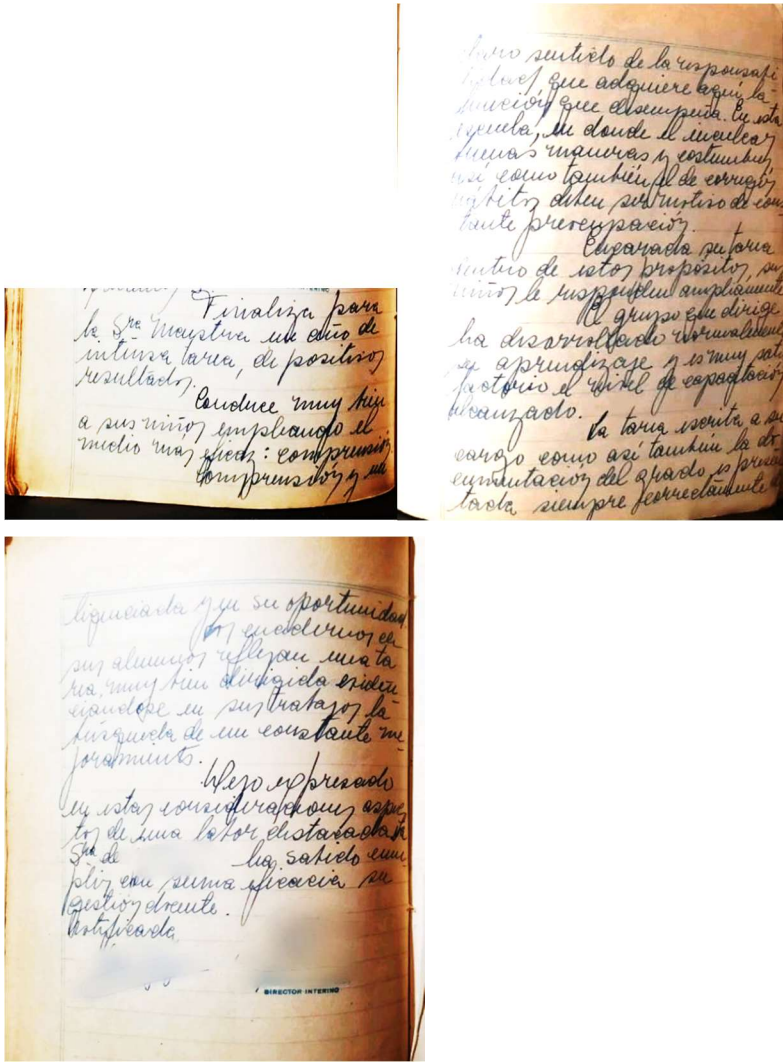 Finaliza para
la Sra Maestra un año de
intensa tarea, de positivos
resultados.
Conduce muy bien
a sus niños empleando el
medio más eficaz: comprensión
Comprensión y un
claro sentido de la responsabi
lidad que adquiere aquí la
función que desempeña. En esta
escuela, en donde el inculcar
buenas maneras y costumbres
así como también el de corregir
hábitos deben ser motivo de cons
tante preocupación.
Encarada su tarea
dentro de estos propósitos, sus
niños le responden ampliamente
El grupo que dirige
ha desarrollado normalmente
su aprendizaje y es muy satis
factorio el nivel de capacitación
alcanzado.
La tarea escrita a su
cargo como así también la do
cumentación del grado es presen
tada siempre correctamente
ligenciada y en su oportunidad
Los cuadernos de
sus alumnos reflejan una ta
rea, muy bien dirigida eviden
ciandose en sus trabajos la
búsqueda de un constante me
joramiento.
Dejo expresado
en estas consideraciones aspec
tos de una labor destacada la
Sra de ha sabido cum
plir con suma eficacia su
gestión docente.
Notificada
DIRECTOR INTERINO